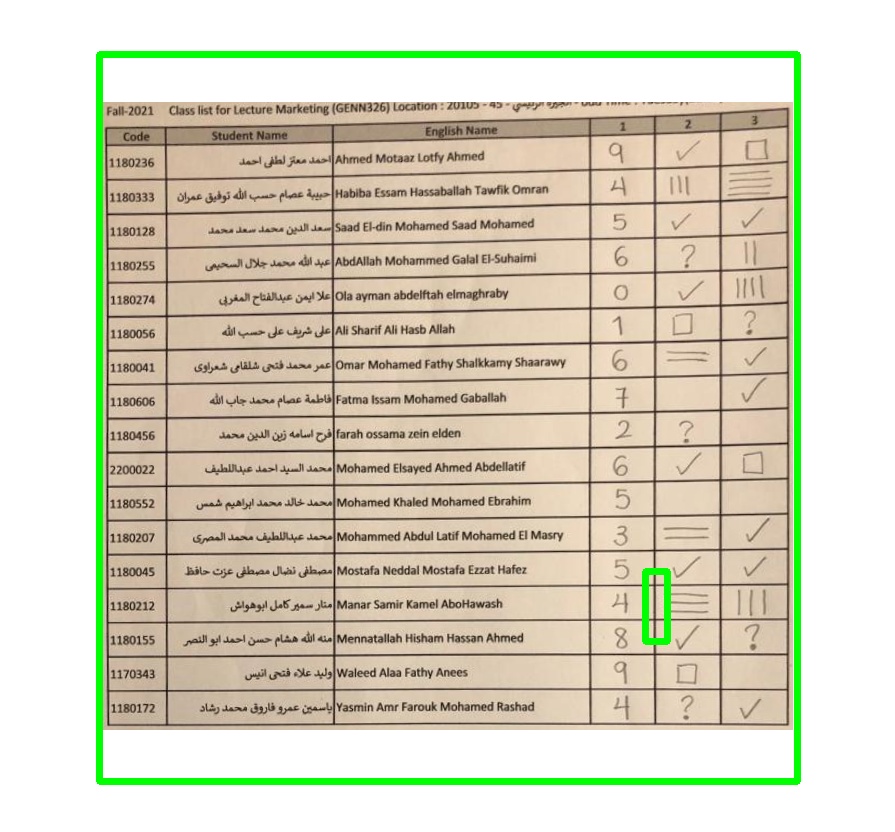 Fall-2021 Class list for Lecture Marketing (GENN326) Location : 20105 - 45 - الجيزة الرئيسي
Code Student Name English Name 1 2 3
1180236 احمد معتز لطفى احمد Ahmed Motaaz Lotfy Ahmed 9 ✓ □
1180333 حبيبة عصام حسب الله توفيق عمران Habiba Essam Hassaballah Tawfik Omran 4 ||| ☰
1180128 سعد الدين محمد سعد محمد Saad El-din Mohamed Saad Mohamed 5 ✓ ✓
1180255 عبد الله محمد جلال السحيمى AbdAllah Mohammed Galal El-Suhaimi 6 ? ||
1180274 علا ايمن عبدالفتاح المغربي Ola ayman abdelftah elmaghraby 0 ✓ ||||
1180056 على شريف على حسب الله Ali Sharif Ali Hasb Allah 1 □ ?
1180041 عمر محمد فتحى شلقامى شعراوى Omar Mohamed Fathy Shalkkamy Shaarawy 6 = ✓
1180606 فاطمة عصام محمد جاب الله Fatma Issam Mohamed Gaballah 7 ✓
1180456 فرح اسامه زين الدين محمد farah ossama zein elden 2 ?
2200022 محمد السيد احمد عبداللطيف Mohamed Elsayed Ahmed Abdellatif 6 ✓ □
1180552 محمد خالد محمد ابراهيم شمس Mohamed Khaled Mohamed Ebrahim 5
1180207 محمد عبداللطيف محمد المصرى Mohammed Abdul Latif Mohamed El Masry 3 = ✓
1180045 مصطفى نضال مصطفى عزت حافظ Mostafa Neddal Mostafa Ezzat Hafez 5 ✓ ✓
1180212 منار سمير كامل ابوهواش Manar Samir Kamel AboHawash 4 ☰ |||
1180155 منه الله هشام حسن احمد ابو النصر Mennatallah Hisham Hassan Ahmed 8 ✓ ?
1170343 وليد علاء فتحى انيس Waleed Alaa Fathy Anees 9 □
1180172 ياسمين عمرو فاروق محمد رشاد Yasmin Amr Farouk Mohamed Rashad 4 ? ✓